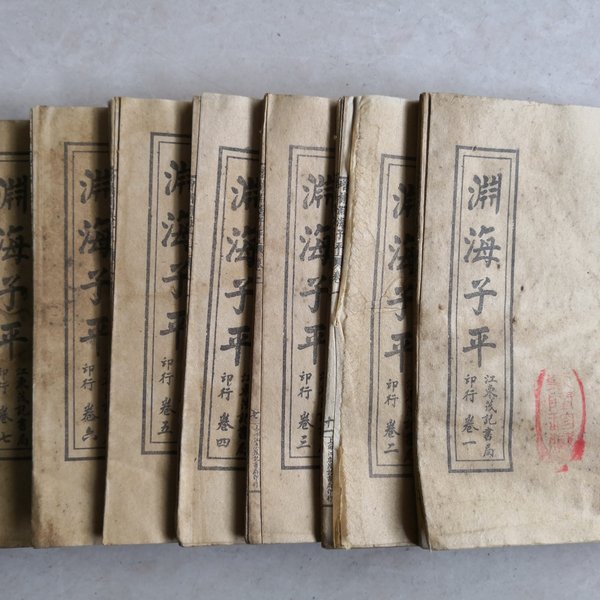 淵海子平
江東茂記書局
印行 卷一
淵海子平
印行 卷二
淵海子平
印行 卷三
淵海子平
江東茂記書局
印行 卷四
淵海子平
印行 卷五
淵海子平
印行 卷六
淵海子平
江東茂記書局
印行 卷七